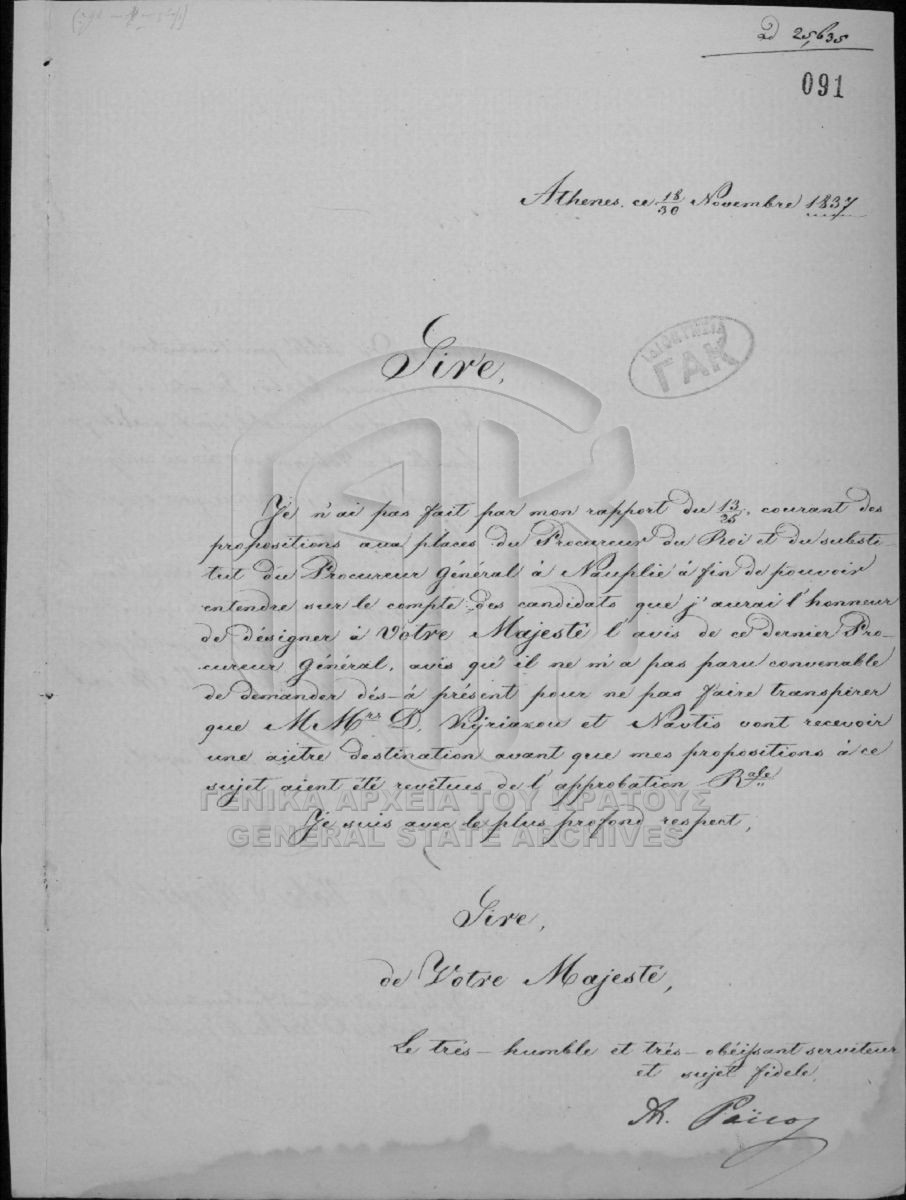 ad 25,635
091
Athenes, ce 18/30 Novembre 1837
Sire,
ΙΔΙΟΚΤΗΣΙΑ
ΓΑΚ
Je n'ai pas fait par mon rapport du 13/25, courant des
propositions aux places du Procureur du Roi et du substi-
tut du Procureur Général à Nauplie à fin de pouvoir
entendre sur le compte des candidats que j'aurai l'honneur
de désigner à Votre Majesté l'avis de ce dernier Pro-
cureur Général, avis qu'il ne m'a pas paru convenable
de demander dés-à présent pour ne pas faire transpirer
que MMrs D. Kyriakou et Navtis vont recevoir
une autre destination avant que mes propositions à ce
sujet aient été revêtues de l'approbation Rale
ΓΕΝΙΚΑ ΑΡΧΕΙΑ ΤΟΥ ΚΡΑΤΟΥΣ
Je suis avec le plus profond respect,
GENERAL STATE ARCHIVES
Sire,
de Votre Majesté,
Le trés-humble et trés-obéissant serviteur
et sujet fidele,
A. Païcos